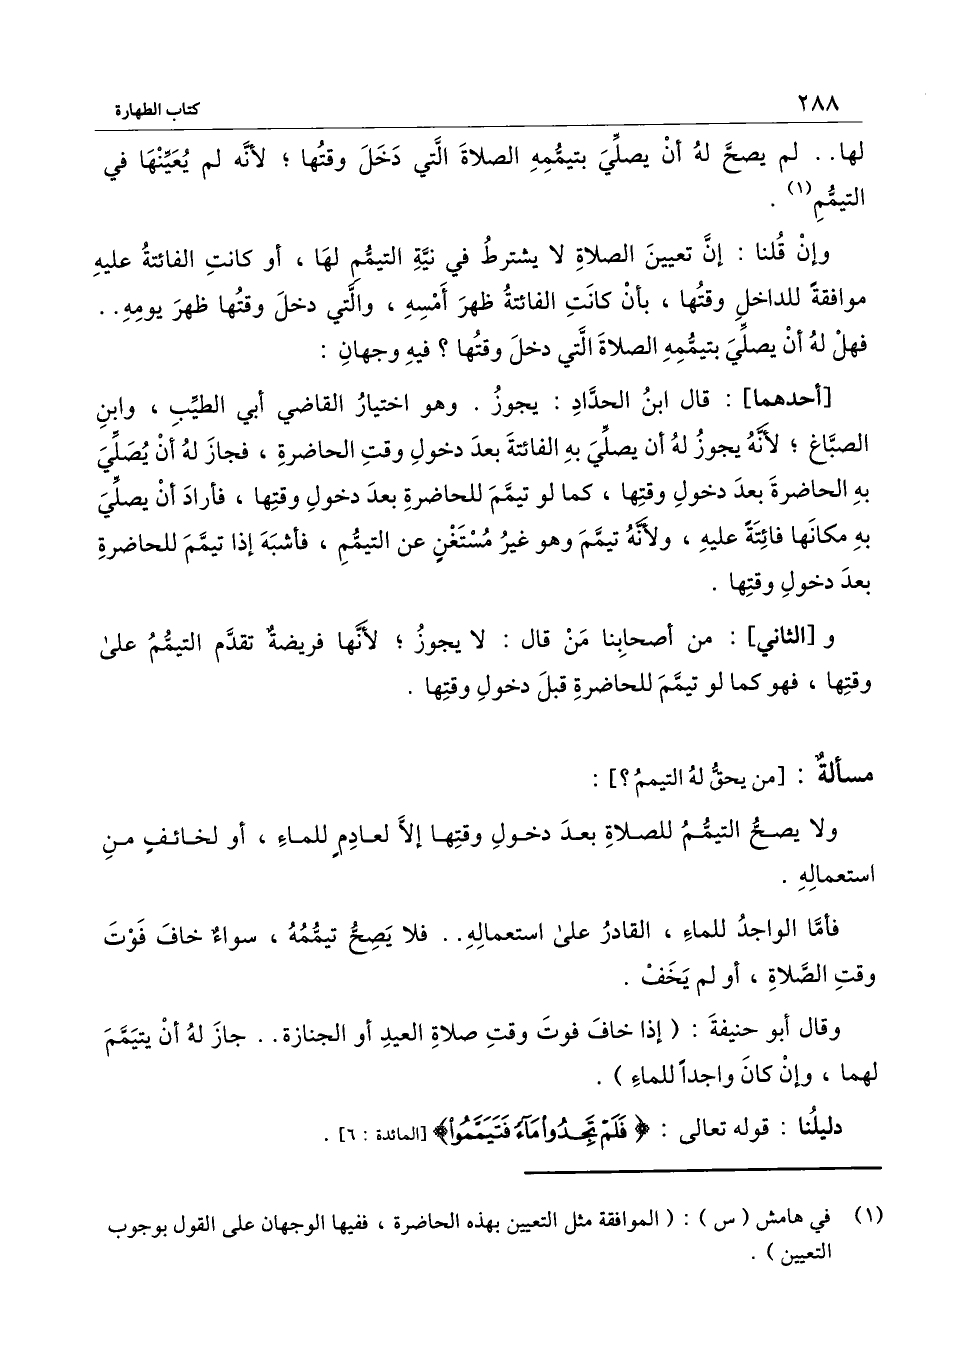 ٢٨٨ كتاب الطهارة
لها.. لم يصحَّ لهُ أنْ يصلِّيَ بتيمُّمِهِ الصلاةَ الَّتي دَخَلَ وقتُها ؛ لأنَّه لم يُعَيِّنْهَا في
التيمُّمِ(١) .
وإنْ قُلنا : إنَّ تعيينَ الصلاةِ لا يشترطُ في نيَّةِ التيمُّمِ لهَا ، أو كانتِ الفائتةُ عليهِ
موافقةً للداخلِ وقتُها ، بأنْ كانَتِ الفائتةُ ظهرَ أَمْسِهِ ، والَّتي دخلَ وقتُها ظهرَ يومِهِ..
فهلْ لهُ أنْ يصلِّيَ بتيمُّمِهِ الصلاةَ الَّتي دخلَ وقتُها ؟ فيهِ وجهانِ :
[أحدهما] : قال ابنُ الحدَّادِ : يجوزُ . وهو اختيارُ القاضي أبي الطيِّبِ ، وابنِ
الصبَّاغِ ؛ لأنَّهُ يجوزُ لهُ أن يصلِّيَ بهِ الفائتةَ بعدَ دخولِ وقتِ الحاضرةِ ، فجازَ لهُ أنْ يُصَلِّيَ
بهِ الحاضرةَ بعدَ دخولِ وقتِها ، كما لو تيمَّمَ للحاضرةِ بعدَ دخولِ وقتِها ، فأرادَ أنْ يصلِّيَ
بهِ مكانَها فائِتَةً عليهِ ، ولأنَّهُ تيمَّمَ وهو غيرُ مُسْتَغْنٍ عن التيمُّمِ ، فأشبَهَ إذا تيمَّمَ للحاضرةِ
بعدَ دخولِ وقتِها .
و [الثاني] : من أصحابِنا مَنْ قال : لا يجوزُ ؛ لأنَّها فريضةٌ تقدَّم التيمُّمُ علىٰ
وقتِها ، فهو كما لو تيمَّمَ للحاضرةِ قبلَ دخولِ وقتِها .
مسألةٌ : [من يحقُّ لهُ التيممُ؟] :
ولا يصـحُّ التيمُّـمُ للصـلاةِ بعـدَ دخـولِ وقتِهـا إلاَّ لعـادِمٍ للمـاءِ ، أو لخـائـفٍ مـنِ
استعمالِهِ .
فأمَّا الواجدُ للماءِ ، القادرُ علىٰ استعمالِهِ.. فلا يَصِحُّ تيمُّمُهُ ، سواءٌ خافَ فَوْتَ
وقتِ الصَّلاةِ ، أو لم يَخَفْ .
وقال أبو حنيفةَ : ( إذا خافَ فوتَ وقتِ صلاةِ العيدِ أو الجنازة.. جازَ لهُ أنْ يتيَمَّمَ
لهما ، وإنْ كانَ واجداً للماءِ ) .
دليلُنا : قوله تعالى : ﴿ فَلَمْ تَجِدُواْ مَآءً فَتَيَمَّمُواْ﴾ [المائدة : ٦] .
(١) في هامش ( س ) : ( الموافقة مثل التعيين بهذه الحاضرة ، ففيها الوجهان على القول بوجوب
التعيين ) .